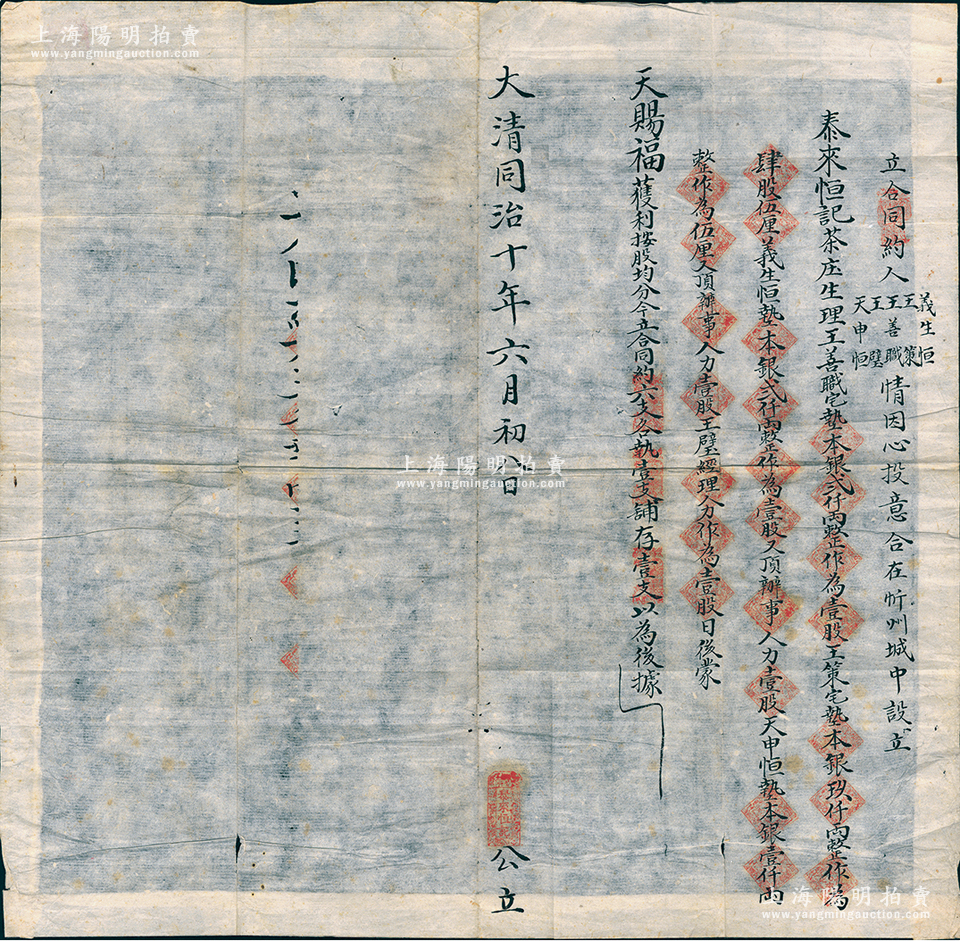 立合同約人義生恒 王策 王善職 王璧 天申恒情因心投意合在忻州城中設立
泰來恒記茶庄生理王善職宅墊本銀弍仟兩整作為壹股王策宅墊本銀玖仟兩整作為
肆股伍厘義生恒墊本銀弍仟兩整作為壹股又頂辦事人力壹股天申恒墊本銀壹仟兩
整作為伍厘又頂辦事人力壹股王璧經理人力作為壹股日後蒙
天賜福獲利按股均分今立合同約六支各執壹支鋪存壹支以為後據
大清同治十年六月初八日
公立
上海陽明拍賣
www.yangmingauction.com
上海陽明拍賣
www.yangmingauction.com
上海陽明拍賣
www.yangmingauction.com